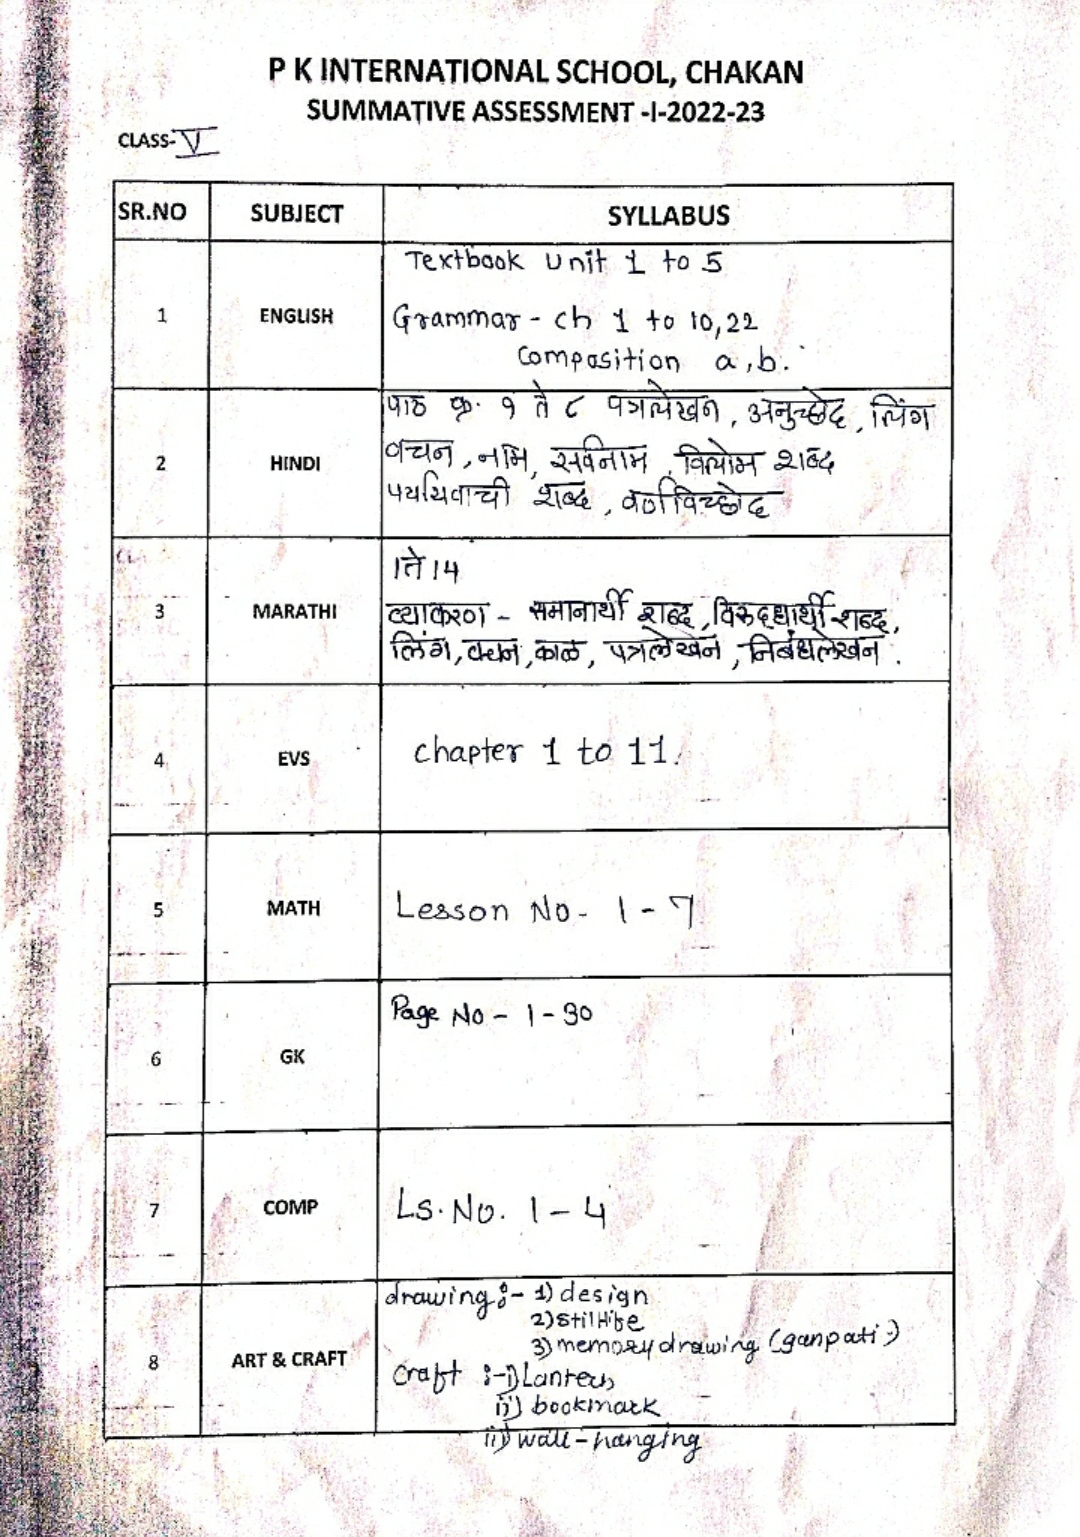 P K INTERNATIONAL SCHOOL, CHAKAN
SUMMATIVE ASSESSMENT -I-2022-23
CLASS- V
SR.NO SUBJECT SYLLABUS
1 ENGLISH Textbook unit 1 to 5
Grammar - ch 1 to 10,22
Composition a,b.
2 HINDI पाठ क्र. १ ते ८ पत्रलेखन, अनुच्छेद, लिंग
वचन, नाम, सर्वनाम, विलोम शब्द
पर्यायवाची शब्द, वर्णविच्छेद
3 MARATHI 1ते 14
व्याकरण - समानार्थी शब्द, विरूद्धार्थी शब्द,
लिंग, वचन, काळ, पत्रलेखन, निबंधलेखन.
4 EVS chapter 1 to 11.
5 MATH Lesson No- 1-7
6 GK Page No - 1-30
7 COMP Ls. No. 1-4
8 ART & CRAFT drawing :- 1) design
2) still life
3) memory drawing (ganpati)
Craft :- i) Lantern
ii) bookmark
ii) wall-hanging